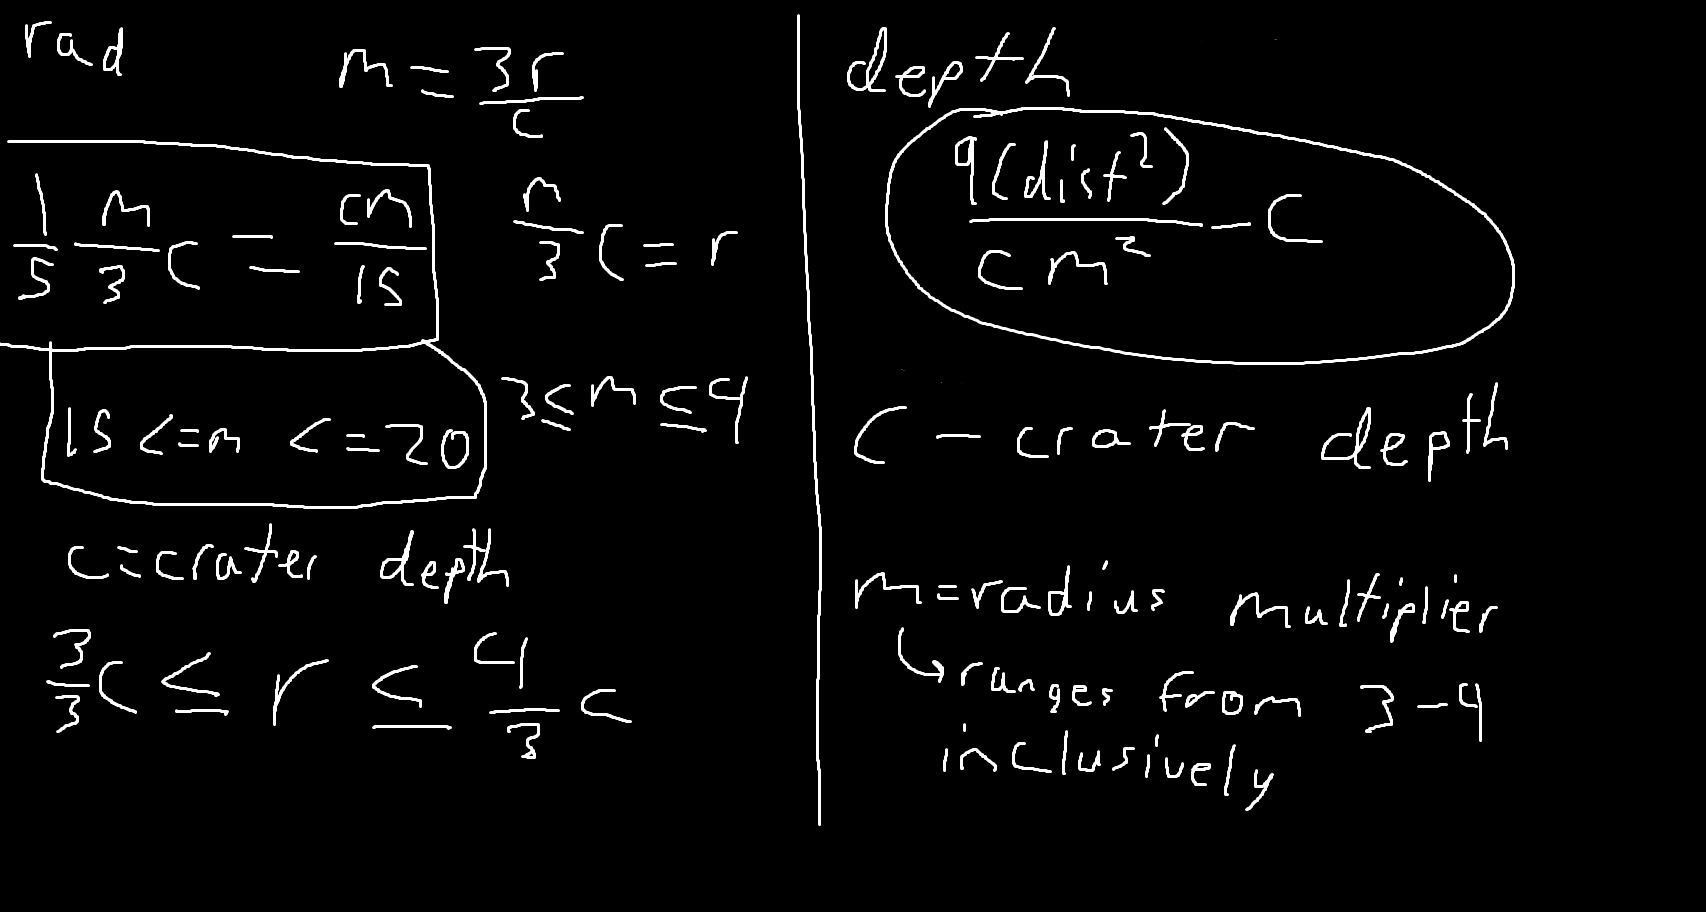 rad
m = 3r/c
1/5 m/3 c = cm/15
m/3 c = r
15 <= m <= 20
3 ≤ m ≤ 4
c = crater depth
3/3 c ≤ r ≤ 4/3 c
depth
9(dist²)/cm² - c
C - crater depth
m = radius multiplier
↳ ranges from 3-4
inclusively